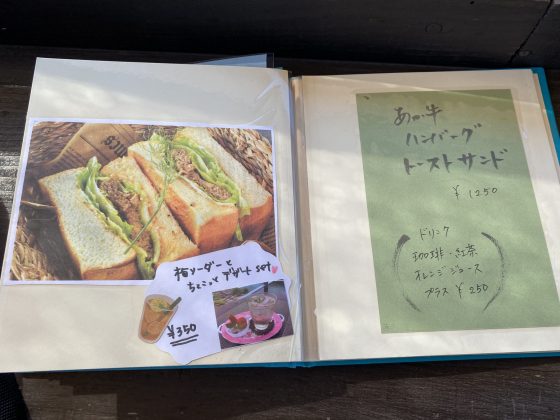 梅ソーダーと
ちょこっとデザート set
¥350
あか牛
ハンバーグ
トーストサンド
¥1250
ドリンク
珈琲・紅茶
オレンジジュース
プラス ¥250